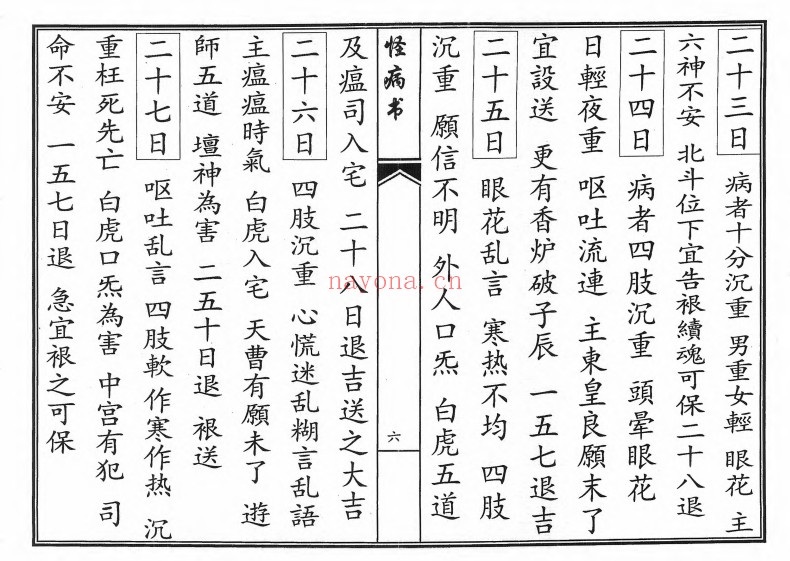 二十三日 病者十分沉重 男重女輕 眼花 主
六神不安 北斗位下宜告禳續魂可保二十八退
二十四日 病者四肢沉重 頭暈眼花
日輕夜重 呕吐流連 主東皇良願未了
宜設送 更有香炉破子辰 一五七退吉
二十五日 眼花乱言 寒热不均 四肢
沉重 願信不明 外人口炁 白虎五道
怪病书
六
及瘟司入宅 二十八日退吉送之大吉
二十六日 四肢沉重 心慌迷乱糊言乱語
主瘟瘟時氣 白虎入宅 天曹有願未了 遊
師五道 壇神為害 二五十日退 禳送
二十七日 呕吐乱言 四肢軟 作寒作热 沉
重枉死先亡 白虎口炁為害 中宫有犯 司
命不安 一五七日退 急宜禳之可保
nayona.cn